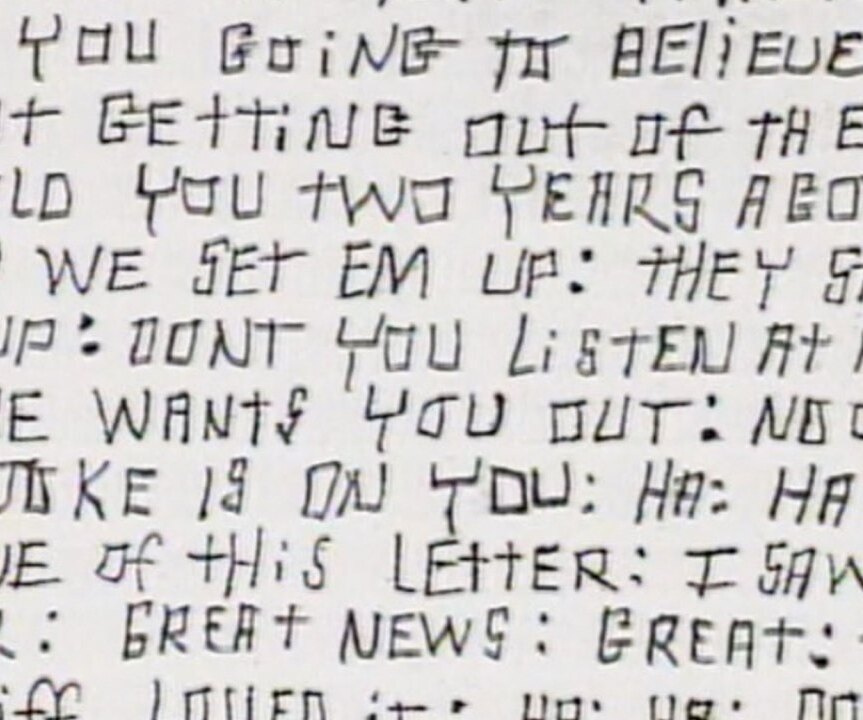 YOU GOiNG TO BEliEVE
GETTiNG OUt Of tHE
YOU tWO YEARS AGO
WE SEt EM UP: tHEY
UP: DONT YOU LiStEN At
WANtS YOU OUT:
JOKE IS ON YOU: HA: HA
Of tHiS LEttER: I SAW
: GREAt NEWS: GREAt:
LOVED it: HA: HA: